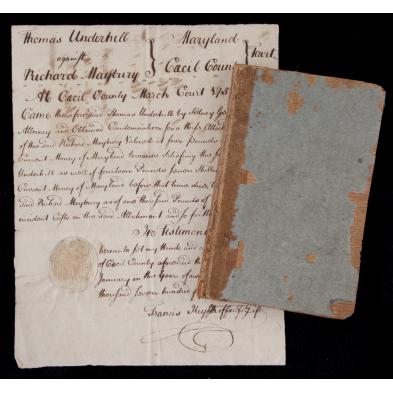 Thomas Underhill
against
Richard Maybury
Maryland
Cacil Coun
Court
At Cacil County March Court 175
Came the aforesaid Thomas Underhill by Sidney Geo
Attorney and Obtained Condemnation for a
of the said Richard Maybury Valued at four pounds
Current Money of Maryland towards Satisfying the
Underhill as well of fourteen Pounds Seven Shilling
Current Money of Maryland before that time
said Richard Maybury as of one thousand Pounds of
Costs in the said Attachment and so for th
In Testimony
hereunto set my Hand and
of Cacil County aforesaid th
January in the Year of
thousand Seven hundred
Francis